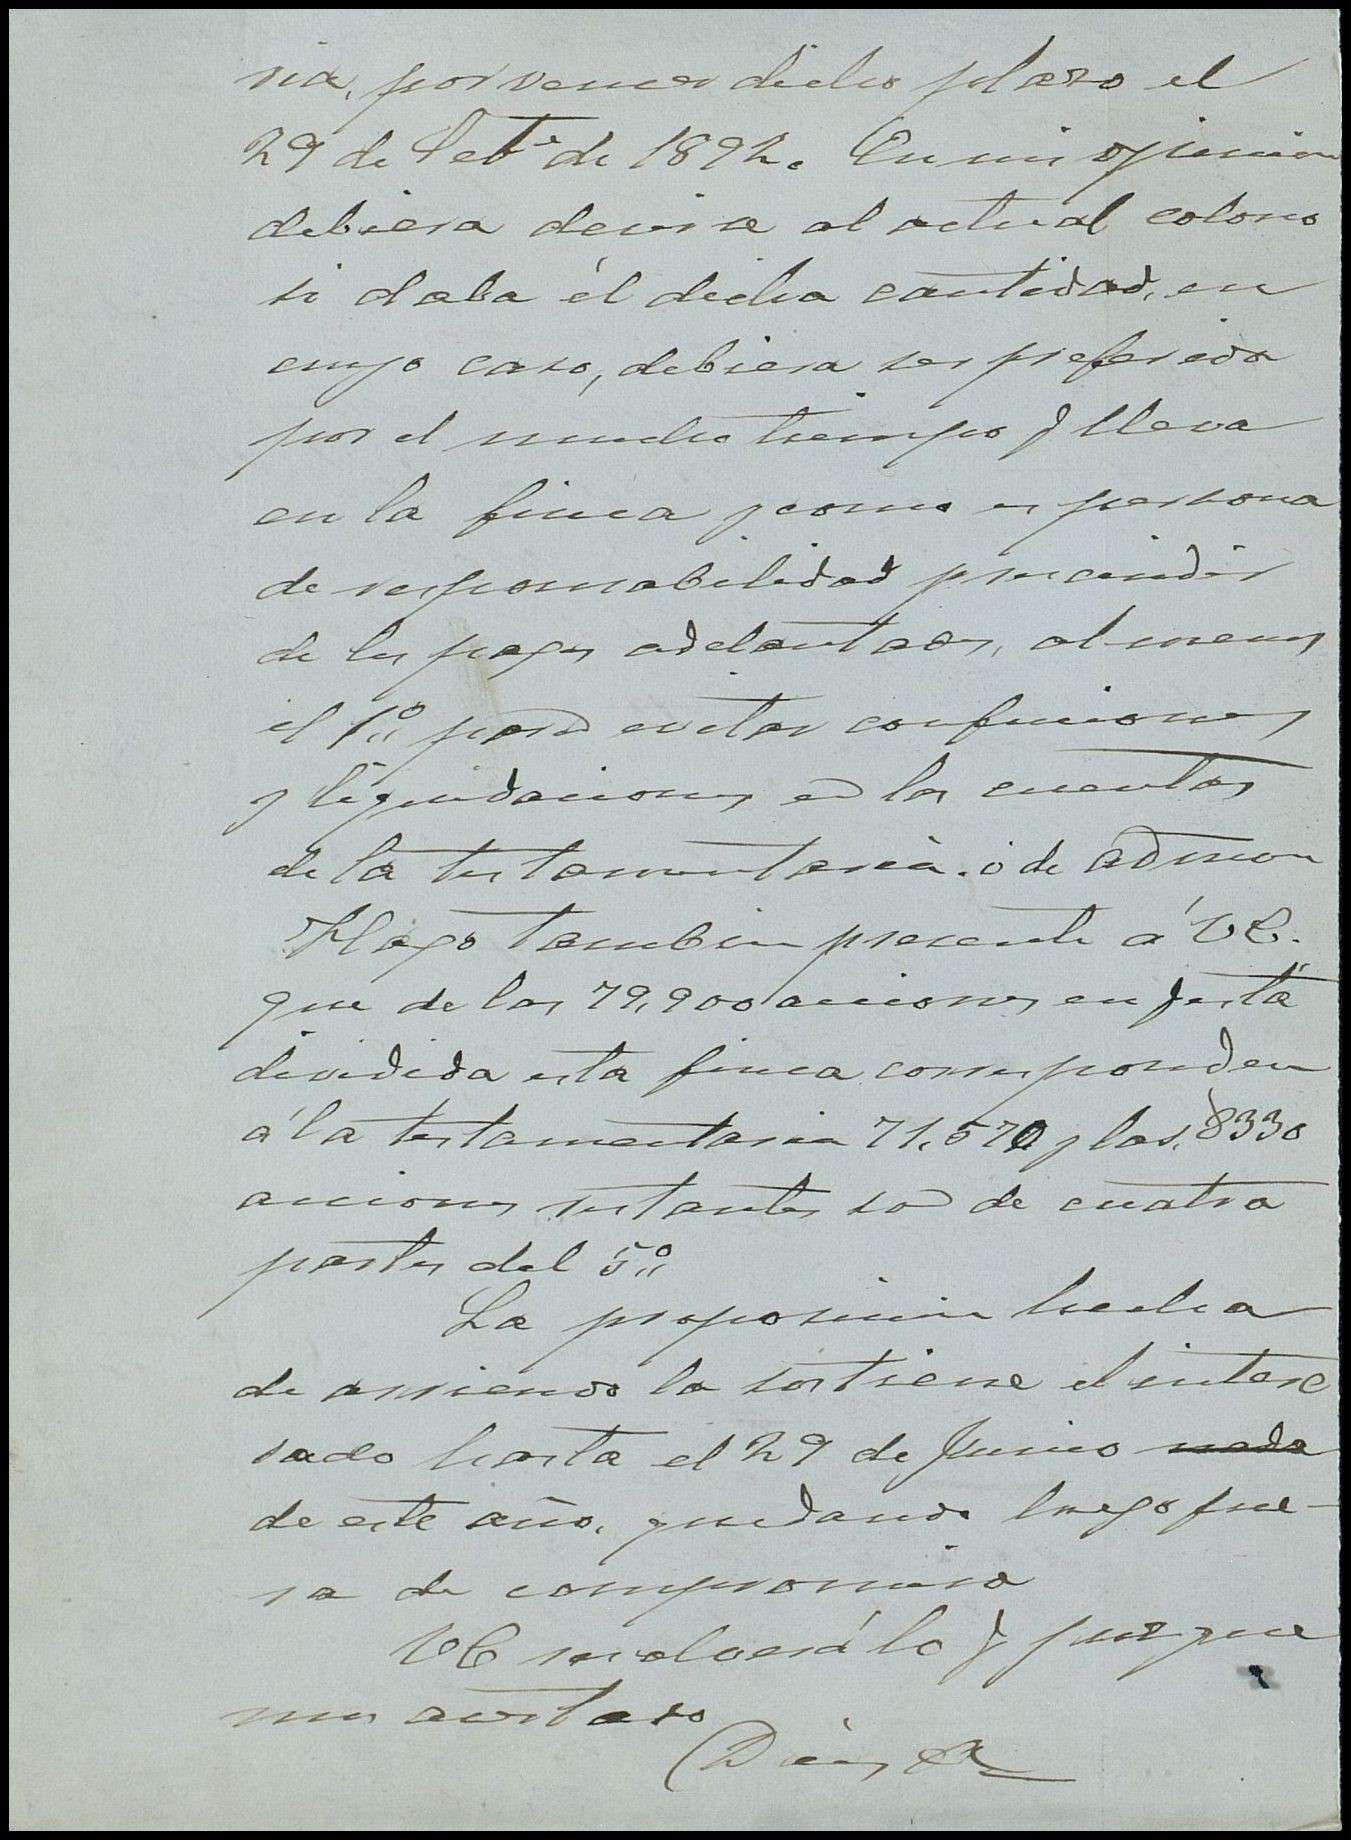 ria, por vencer dicho plazo el
29 de Setᵉ de 1892. En mi opinion
debiera decirse al actual colono
si daba él dicha cantidad, en
cuyo caso, debiera ser preferido
por el mucho tiempo q lleva
en la finca y como es persona
de responsabilidad prescindir
de los pagos adelantados, al menos
el 1º para evitar confusiones
y liquidaciones en las cuentas
de la testamentaria ó de admon
Hago tambien presente á VE.
que de las 79,900 acciones en q está
dividida esta finca corresponden
á la testamentaria 71,570 y las 8330
acciones restantes son de cuatro
partes del 5º
La proposicion hecha
de arriendo la sostiene el intere
sado hasta el 29 de Junio nada
de este año, quedando luego fue-
ra de compromiso
VE resolverá lo q juzgue
mas acertado